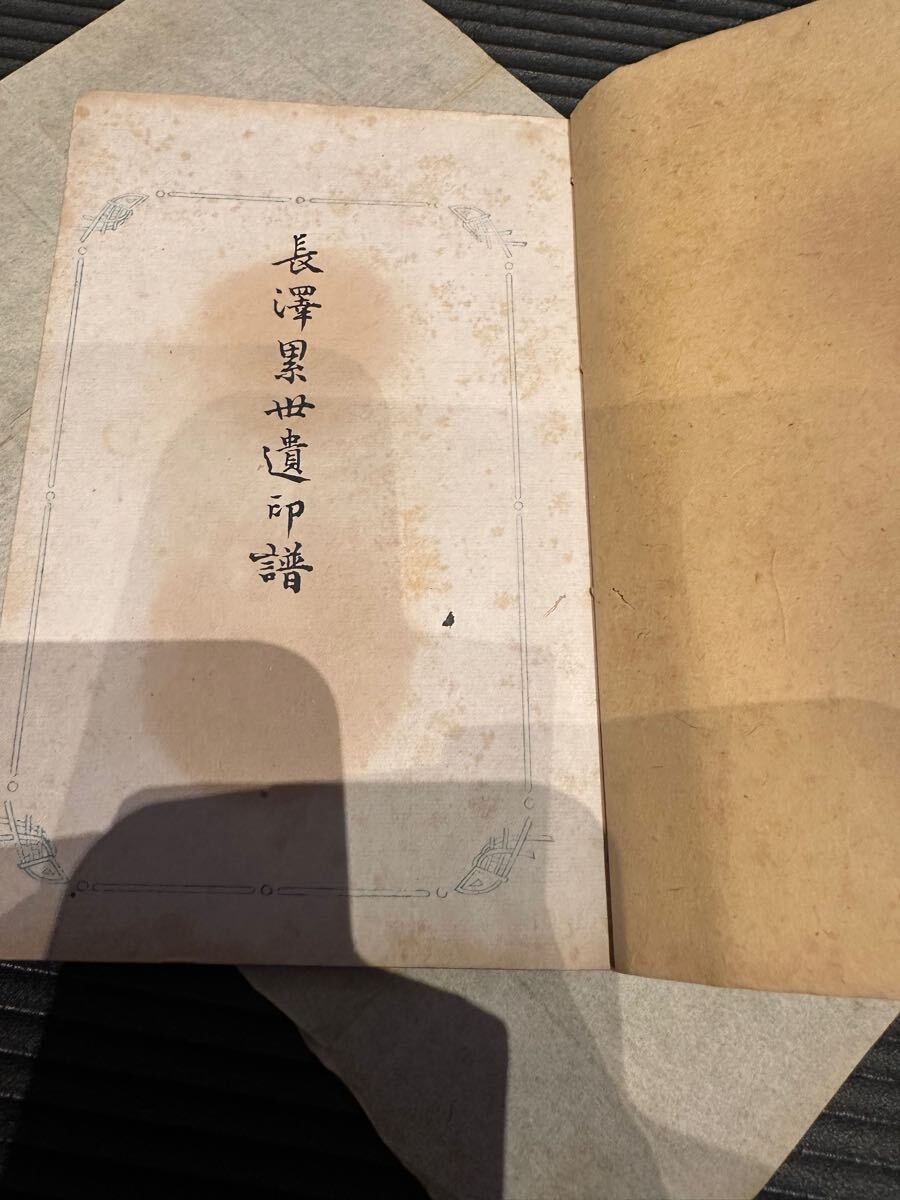 長澤累世遺印譜